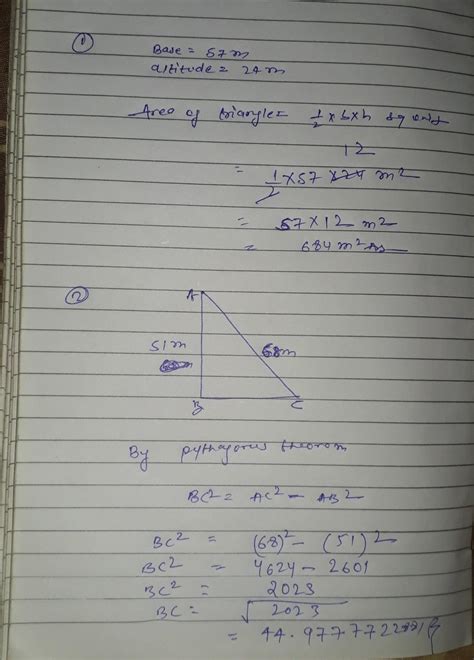 ①
Base = 57m
altitude = 24m
Area of triangle = 1/2 × b × h sq units
12
= 1/2 × 57 × 24 m2
= 57 × 12 m2
= 684 m2 Ans
②
A
51m
68m
B
C
By pythagorus theorem
BC2 = AC2 - AB2
BC2 = (68)2 - (51)2
BC2 = 4624 - 2601
BC2 = 2023
BC = √2023